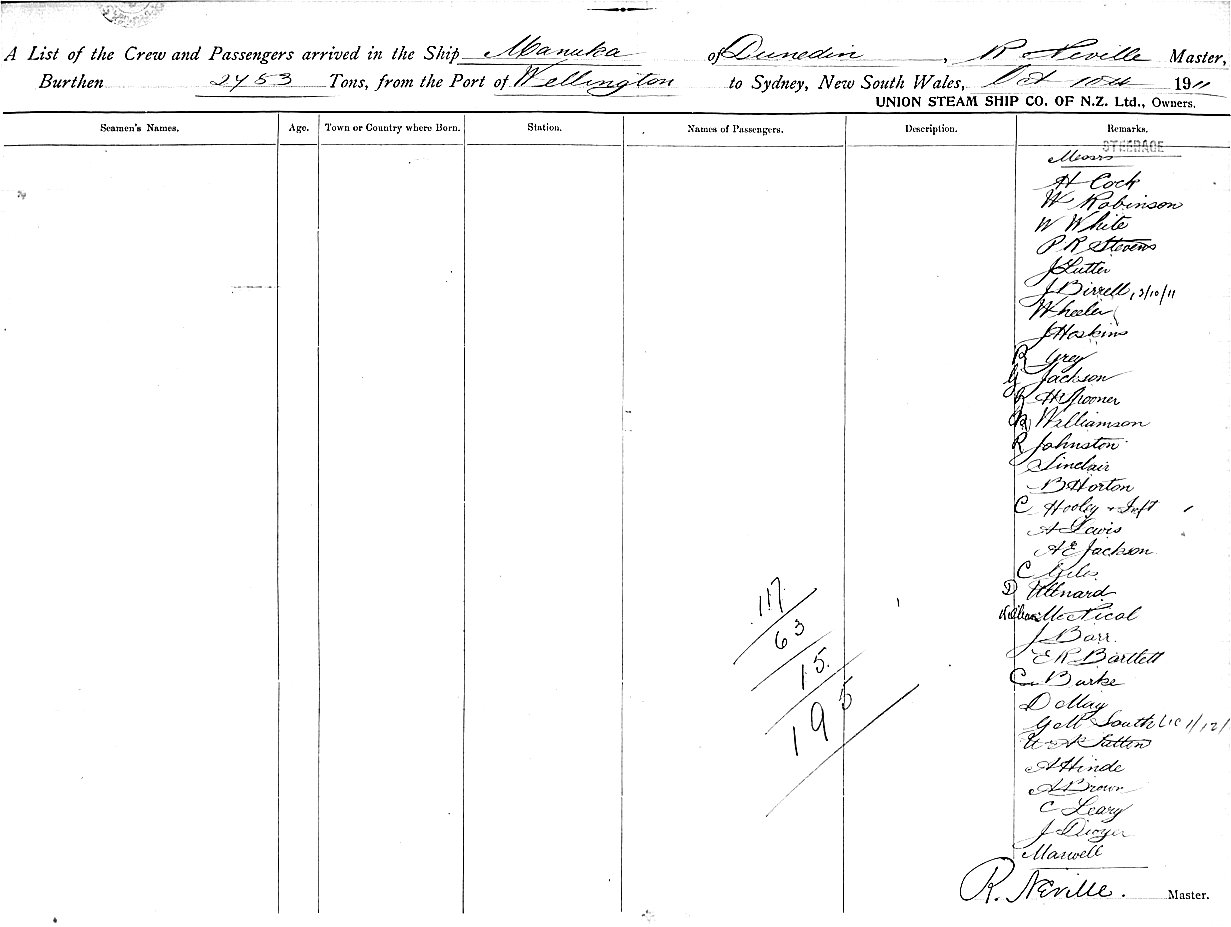 A List of the Crew and Passengers arrived in the Ship Manuka of Dunedin, R Neville Master,
Burthen 2453 Tons, from the Port of Wellington to Sydney, New South Wales, Oct 10th 1911
UNION STEAM SHIP CO. OF N.Z. Ltd., Owners.
Seamen's Names. Age. Town or Country where Born. Station. Names of Passengers. Description. Remarks.
STEERAGE
Messrs
H Cock
W Robinson
W White
P R Stevens
J Lutter
J Birrell, 3/10/11
Wheeler
J Hoskins
R Grey
G Jackson
R H Spooner
Williamson
R Johnston
Sinclair
B Horton
C Hooley + Inft
A Lewis
A E Jackson
C Giles
D
McNicol
J Barr.
E R Bartlett
C Burke
D May
G M South 1/12/
A Hinde
A Brown
C Leary
J Dwyer
Maxwell
117
63
15
195
R. Neville. Master.